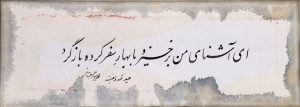 ای آشنای من برخیز و با بهار سفر کرده بازگرد